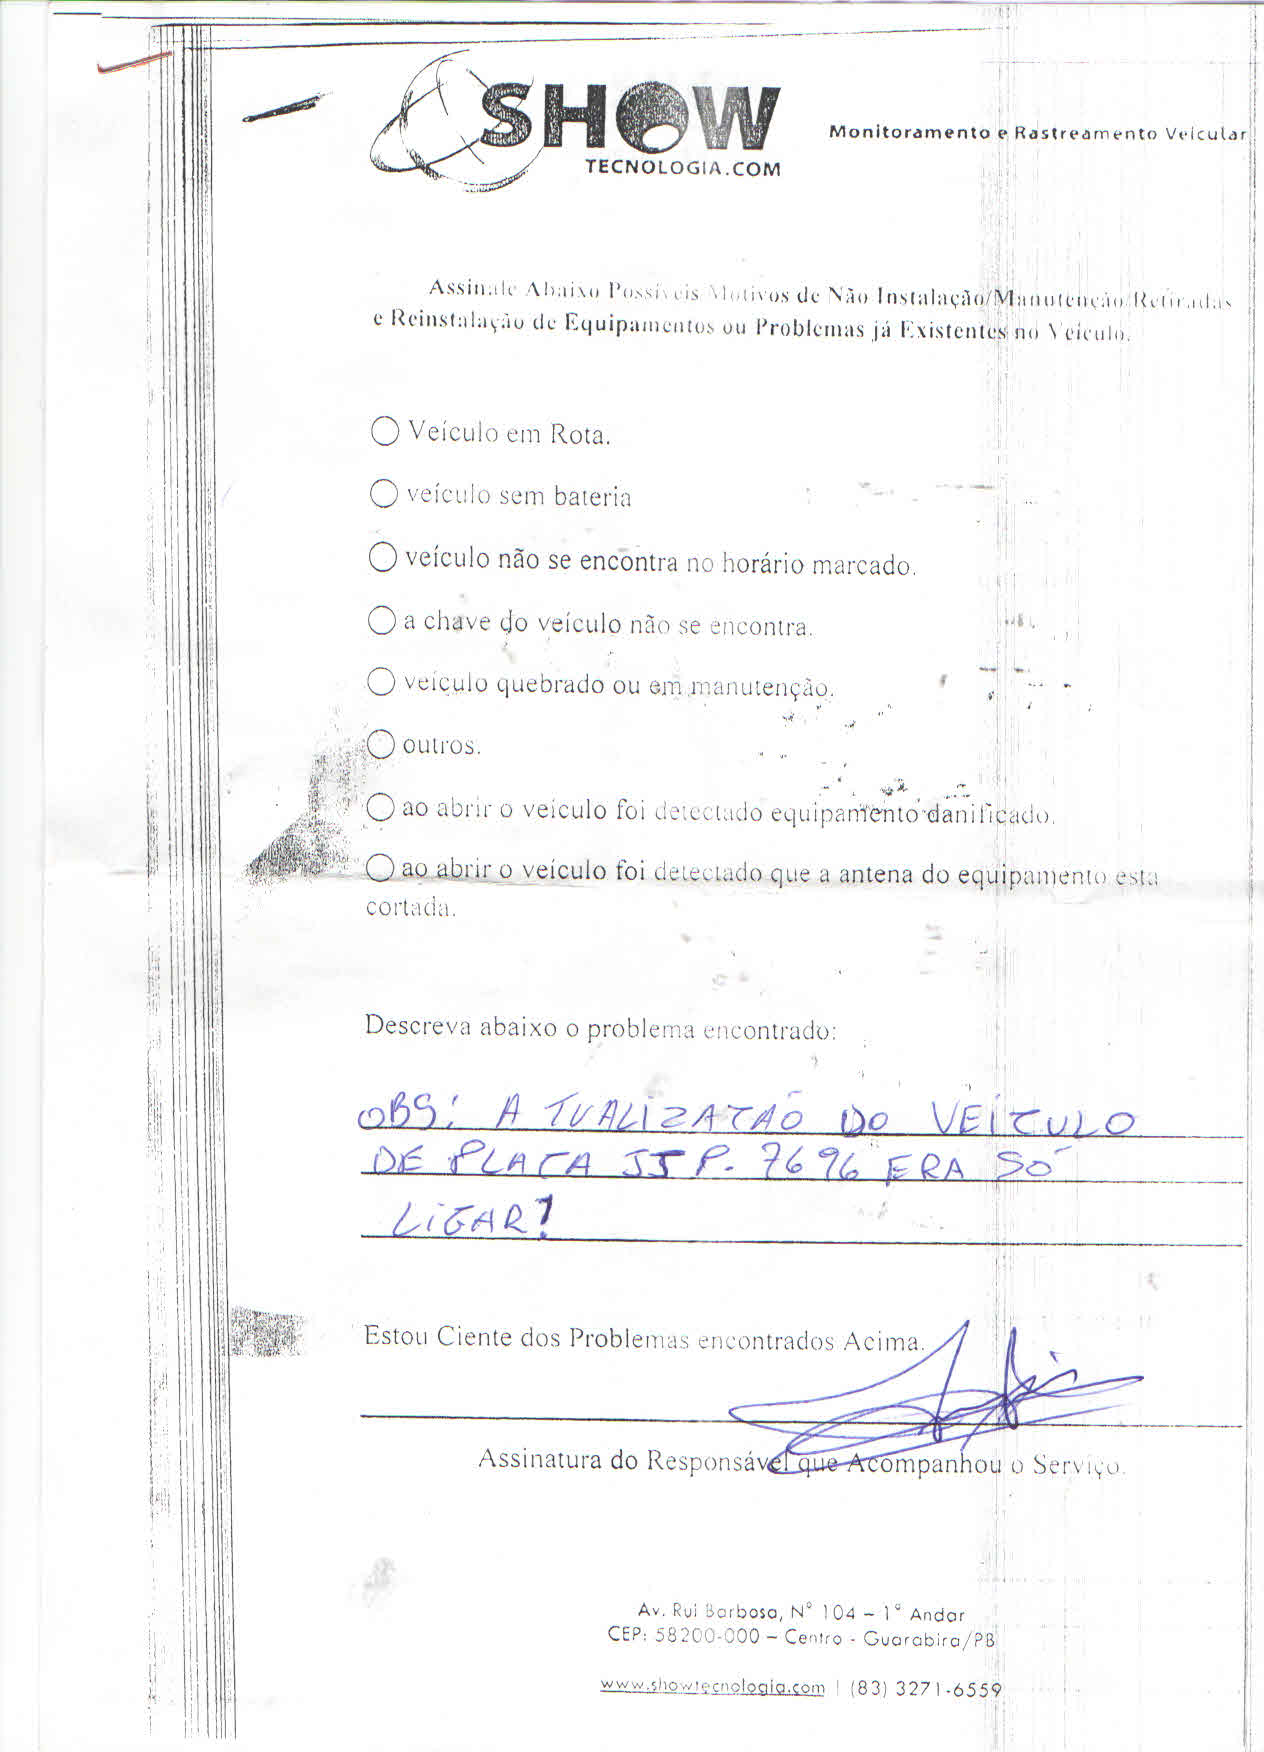 SHOW
TECNOLOGIA.COM
Monitoramento e Rastreamento Veicular
Assinale Abaixo Possíveis Motivos de Não Instalação/Manutenção/Retiradas
e Reinstalação de Equipamentos ou Problemas já Existentes no Veículo.
Veículo em Rota.
veículo sem bateria
veículo não se encontra no horário marcado.
a chave do veículo não se encontra.
veículo quebrado ou em manutenção.
outros.
ao abrir o veículo foi detectado equipamento danificado.
ao abrir o veículo foi detectado que a antena do equipamento esta
cortada.
Descreva abaixo o problema encontrado:
OBS: A TUALIZACAO DO VEÍCULO
DE PLACA JJP. 7696 ERA SÓ
LIGAR!
Estou Ciente dos Problemas encontrados Acima.
Assinatura do Responsável que Acompanhou o Serviço.
Av. Rui Barbosa, Nº 104 – 1º Andar
CEP: 58200-000 – Centro - Guarabira/PB
www.showtecnologia.com | (83) 3271-6559